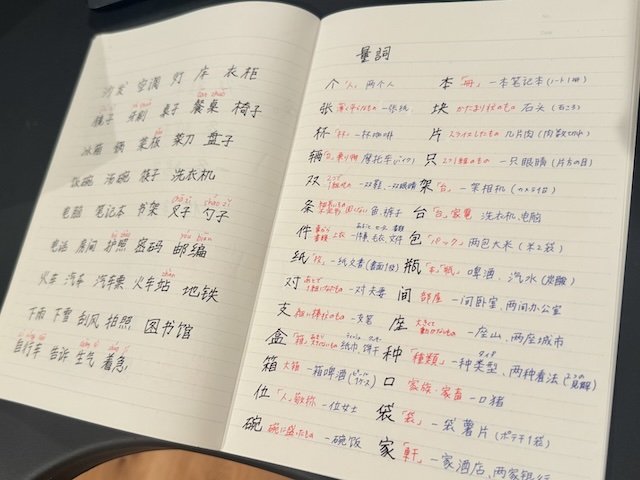 沙发 空调 灯 床 衣柜
镜子 牙刷 桌子 餐桌 椅子
冰箱 锅 菜板 菜刀 盘子
饭碗 汤碗 筷子 洗衣机
chā zi sháo zi
电脑 笔记本 书架 叉子 勺子
电话 房间 护照 密码 邮编
火车 汽车 汽车票 火车站 地铁
下雨 下雪 刮风 拍照 图书馆
自行车 告诉 生气 着急
量詞
个 「人」 两个人
张 一张纸
杯 「杯」 一杯咖啡
辆 摩托车 (バイク)
双 一双鞋、一双眼睛
条 鱼、裤子
件 上衣 一件事、毛衣、文件
纸 「段」 一纸文書
对 一对夫妻
支 细い棒状のもの 一支笔
盒 纸巾、饼干
箱 大箱 一箱啤酒
位 「人」敬称 一位女士
碗 碗に盛ったもの 一碗饭
本 「冊」 一本笔记本 (ノート1冊)
块 かたまり状のもの 石头 (石ころ)
片 スライスしたもの 几片肉
只 2つで1組のもの 一只眼睛 (片方の目)
架 「台」 一架相机 (カメラ1台)
台 「台」家電 洗衣机、电脑
包 「パック」 两包大米 (米2袋)
瓶 「本」「瓶」 啤酒、汽水 (炭酸)
间 部屋 一间卧室、两间办公室
座 大きくて動かないもの 一座山、两座城市
种 「種類」 一种类型、两种看法 (2つの見解)
口 家族、家畜 一口猪
袋 「袋」 一袋薯片 (ポテチ1袋)
家 「軒」 一家酒店、两家银行